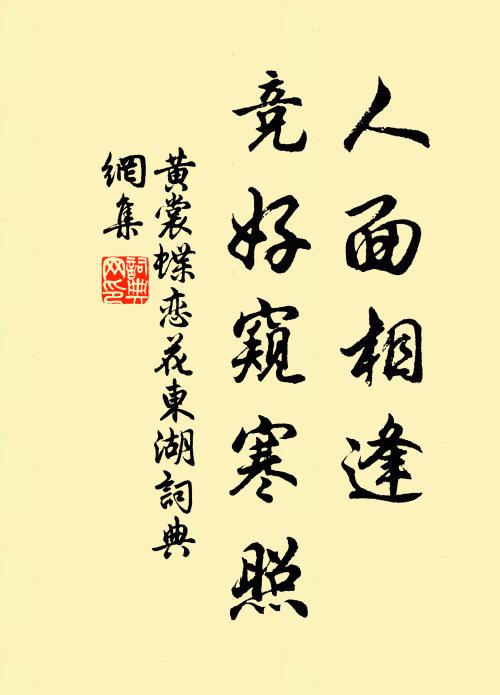 人面相逢
竞好窺寒照
黄裳蝶恋花東湖詞典
網集
詞典網印